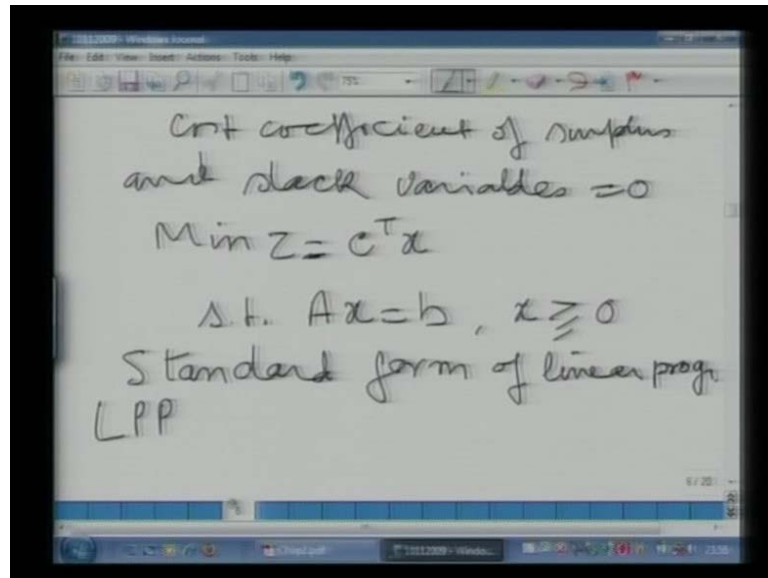 10112009 - Windows Journal
File Edit View Insert Actions Tools Help
75%
Cost coefficient of surplus
and slack variables = 0
Min Z = c^T x
s.t. Ax = b, x ≥ 0
Standard form of linear prog.
LPP
6 / 20
10112009 - Windo...